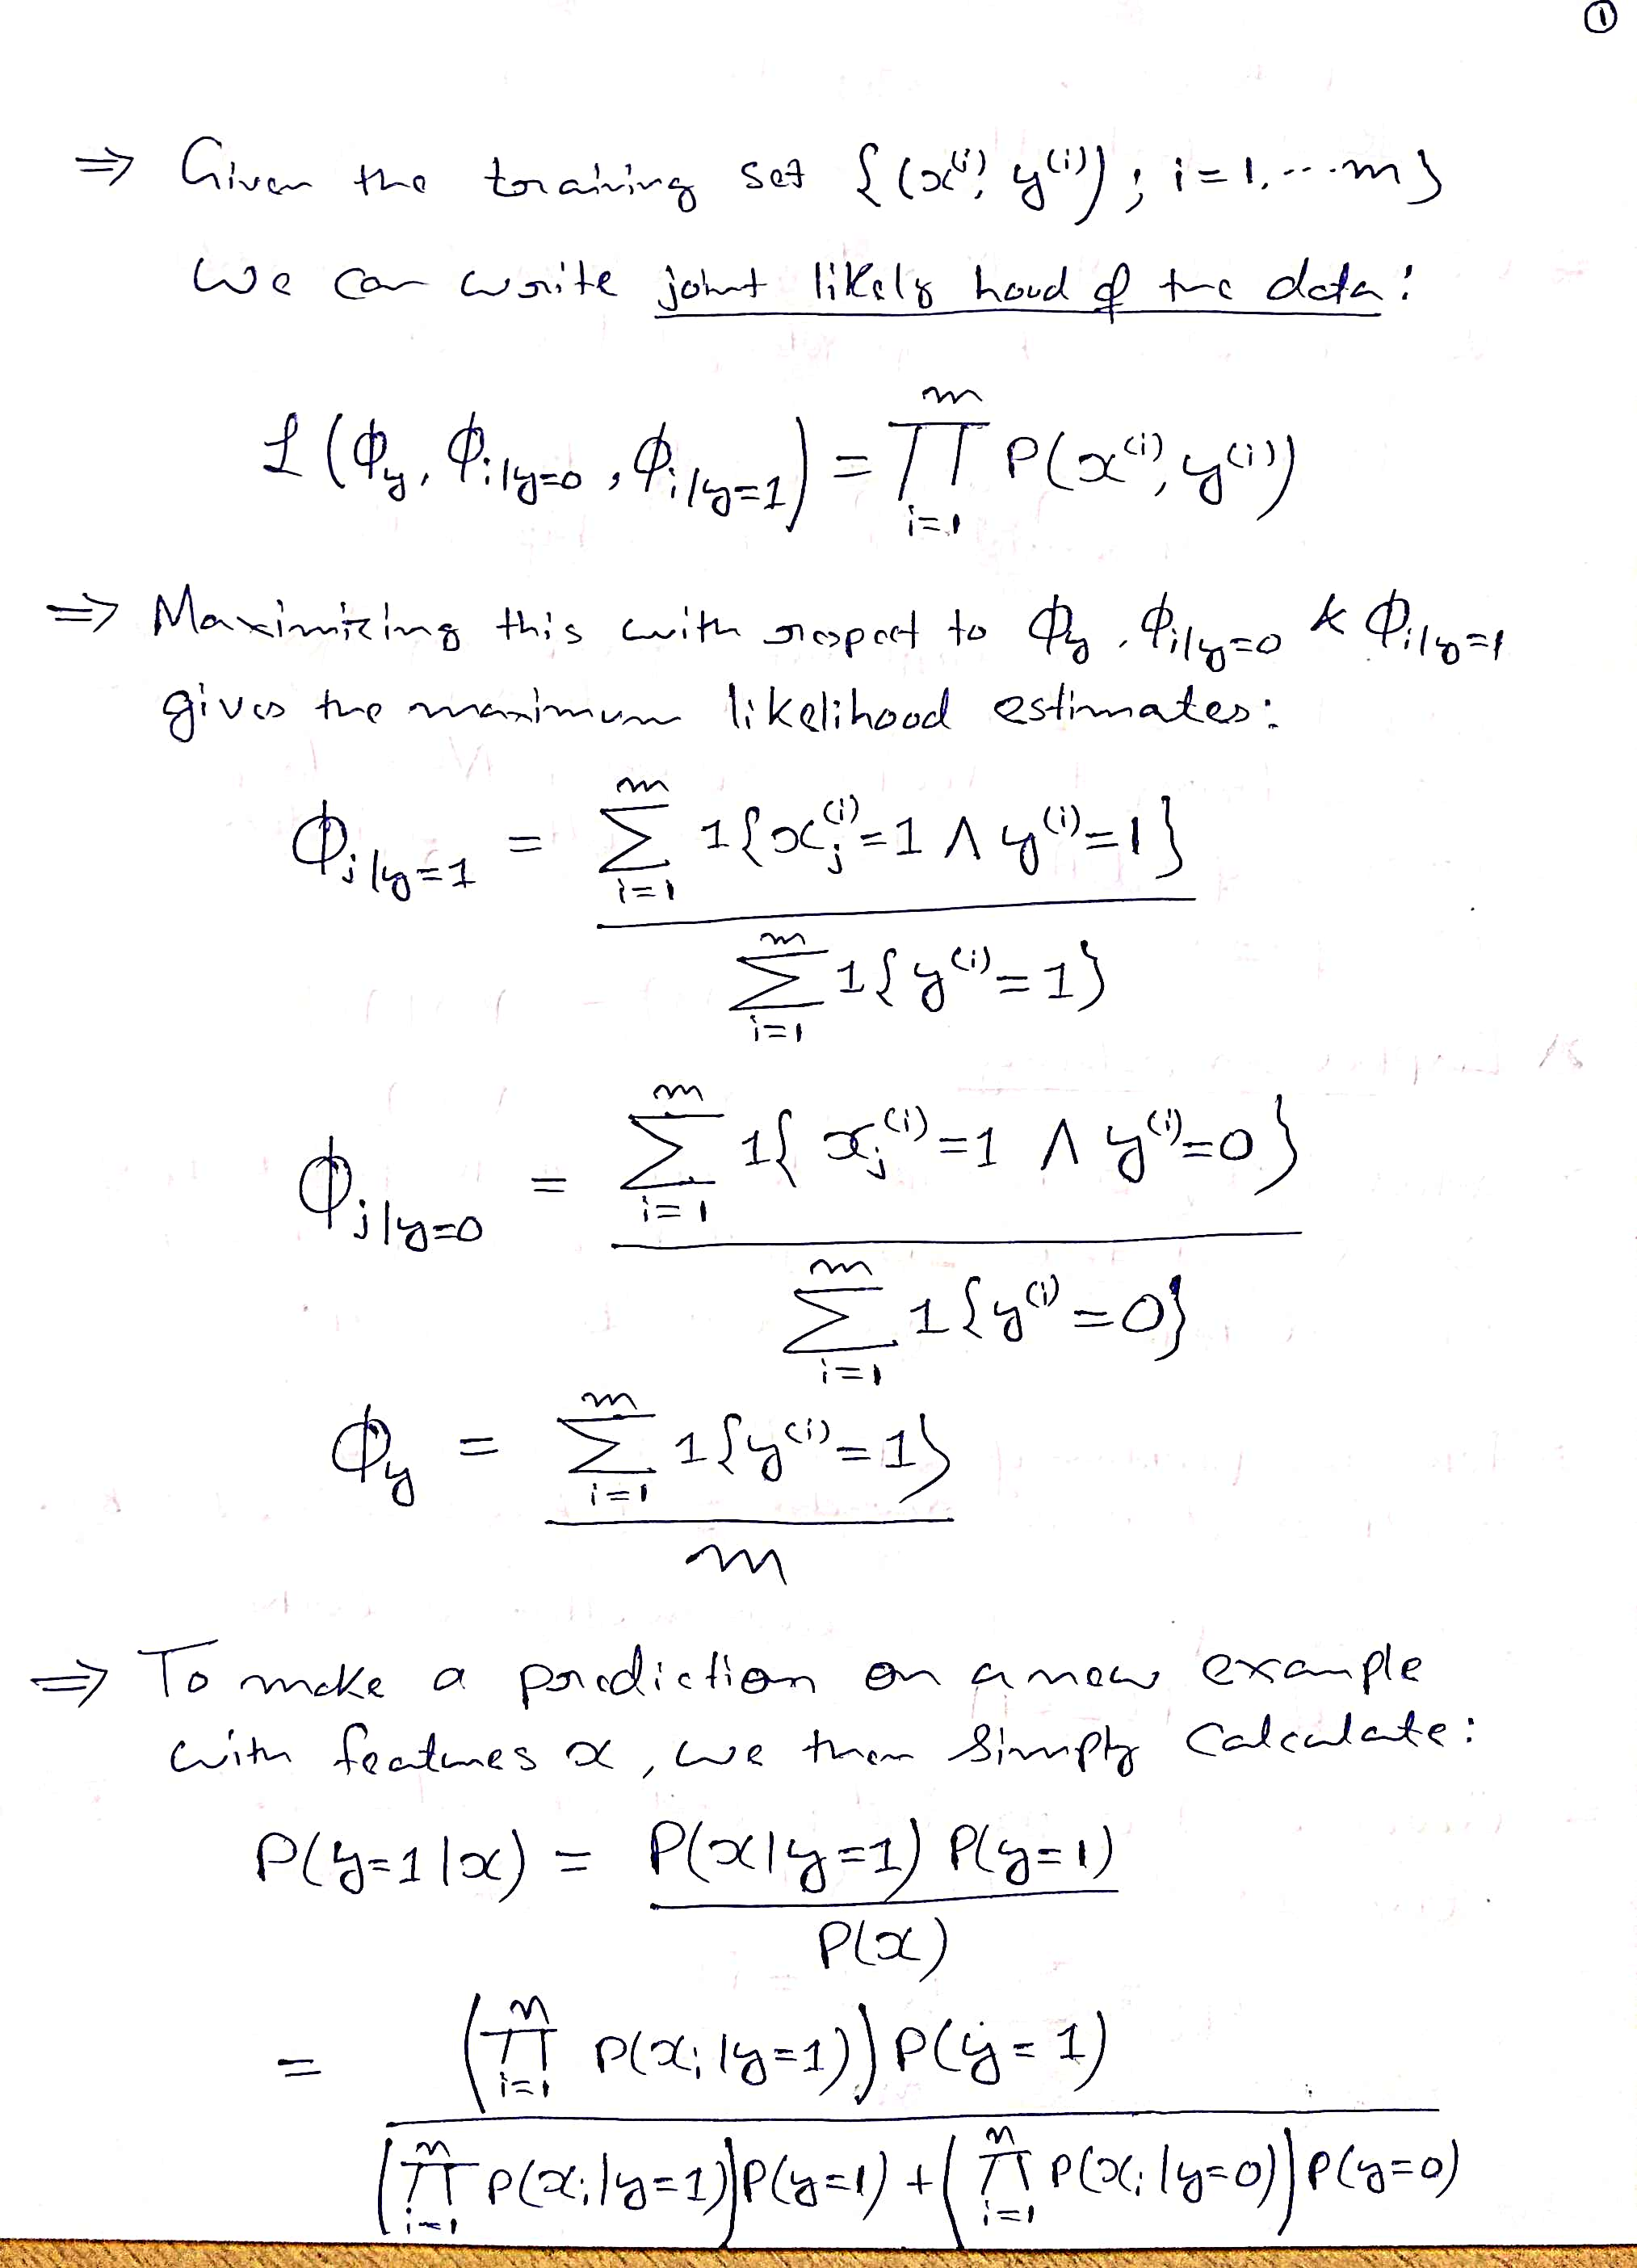 ①
⇒ Given the training set {(x⁽ⁱ⁾, y⁽ⁱ⁾); i=1,...m}
we can write joint likely hood of the data:
m
ℒ(ϕ_y, ϕ_{i|y=0}, ϕ_{i|y=1}) = ∏ P(x⁽ⁱ⁾, y⁽ⁱ⁾)
i=1
⇒ Maximizing this with respect to ϕ_y, ϕ_{i|y=0} & ϕ_{i|y=1}
gives the maximum likelihood estimates:
m
ϕ_{j|y=1} = ∑ 1{x_j⁽ⁱ⁾=1 ∧ y⁽ⁱ⁾=1}
i=1
m
∑ 1{y⁽ⁱ⁾=1}
i=1
m
ϕ_{j|y=0} = ∑ 1{x_j⁽ⁱ⁾=1 ∧ y⁽ⁱ⁾=0}
i=1
m
∑ 1{y⁽ⁱ⁾=0}
i=1
m
ϕ_y = ∑ 1{y⁽ⁱ⁾=1}
i=1
m
⇒ To make a prediction on a new example
with features x, we then simply calculate:
P(y=1|x) = P(x|y=1) P(y=1)
P(x)
n
= (∏ P(x_i|y=1)) P(y=1)
i=1
n n
(∏ P(x_i|y=1)) P(y=1) + (∏ P(x_i|y=0)) P(y=0)
i=1 i=1